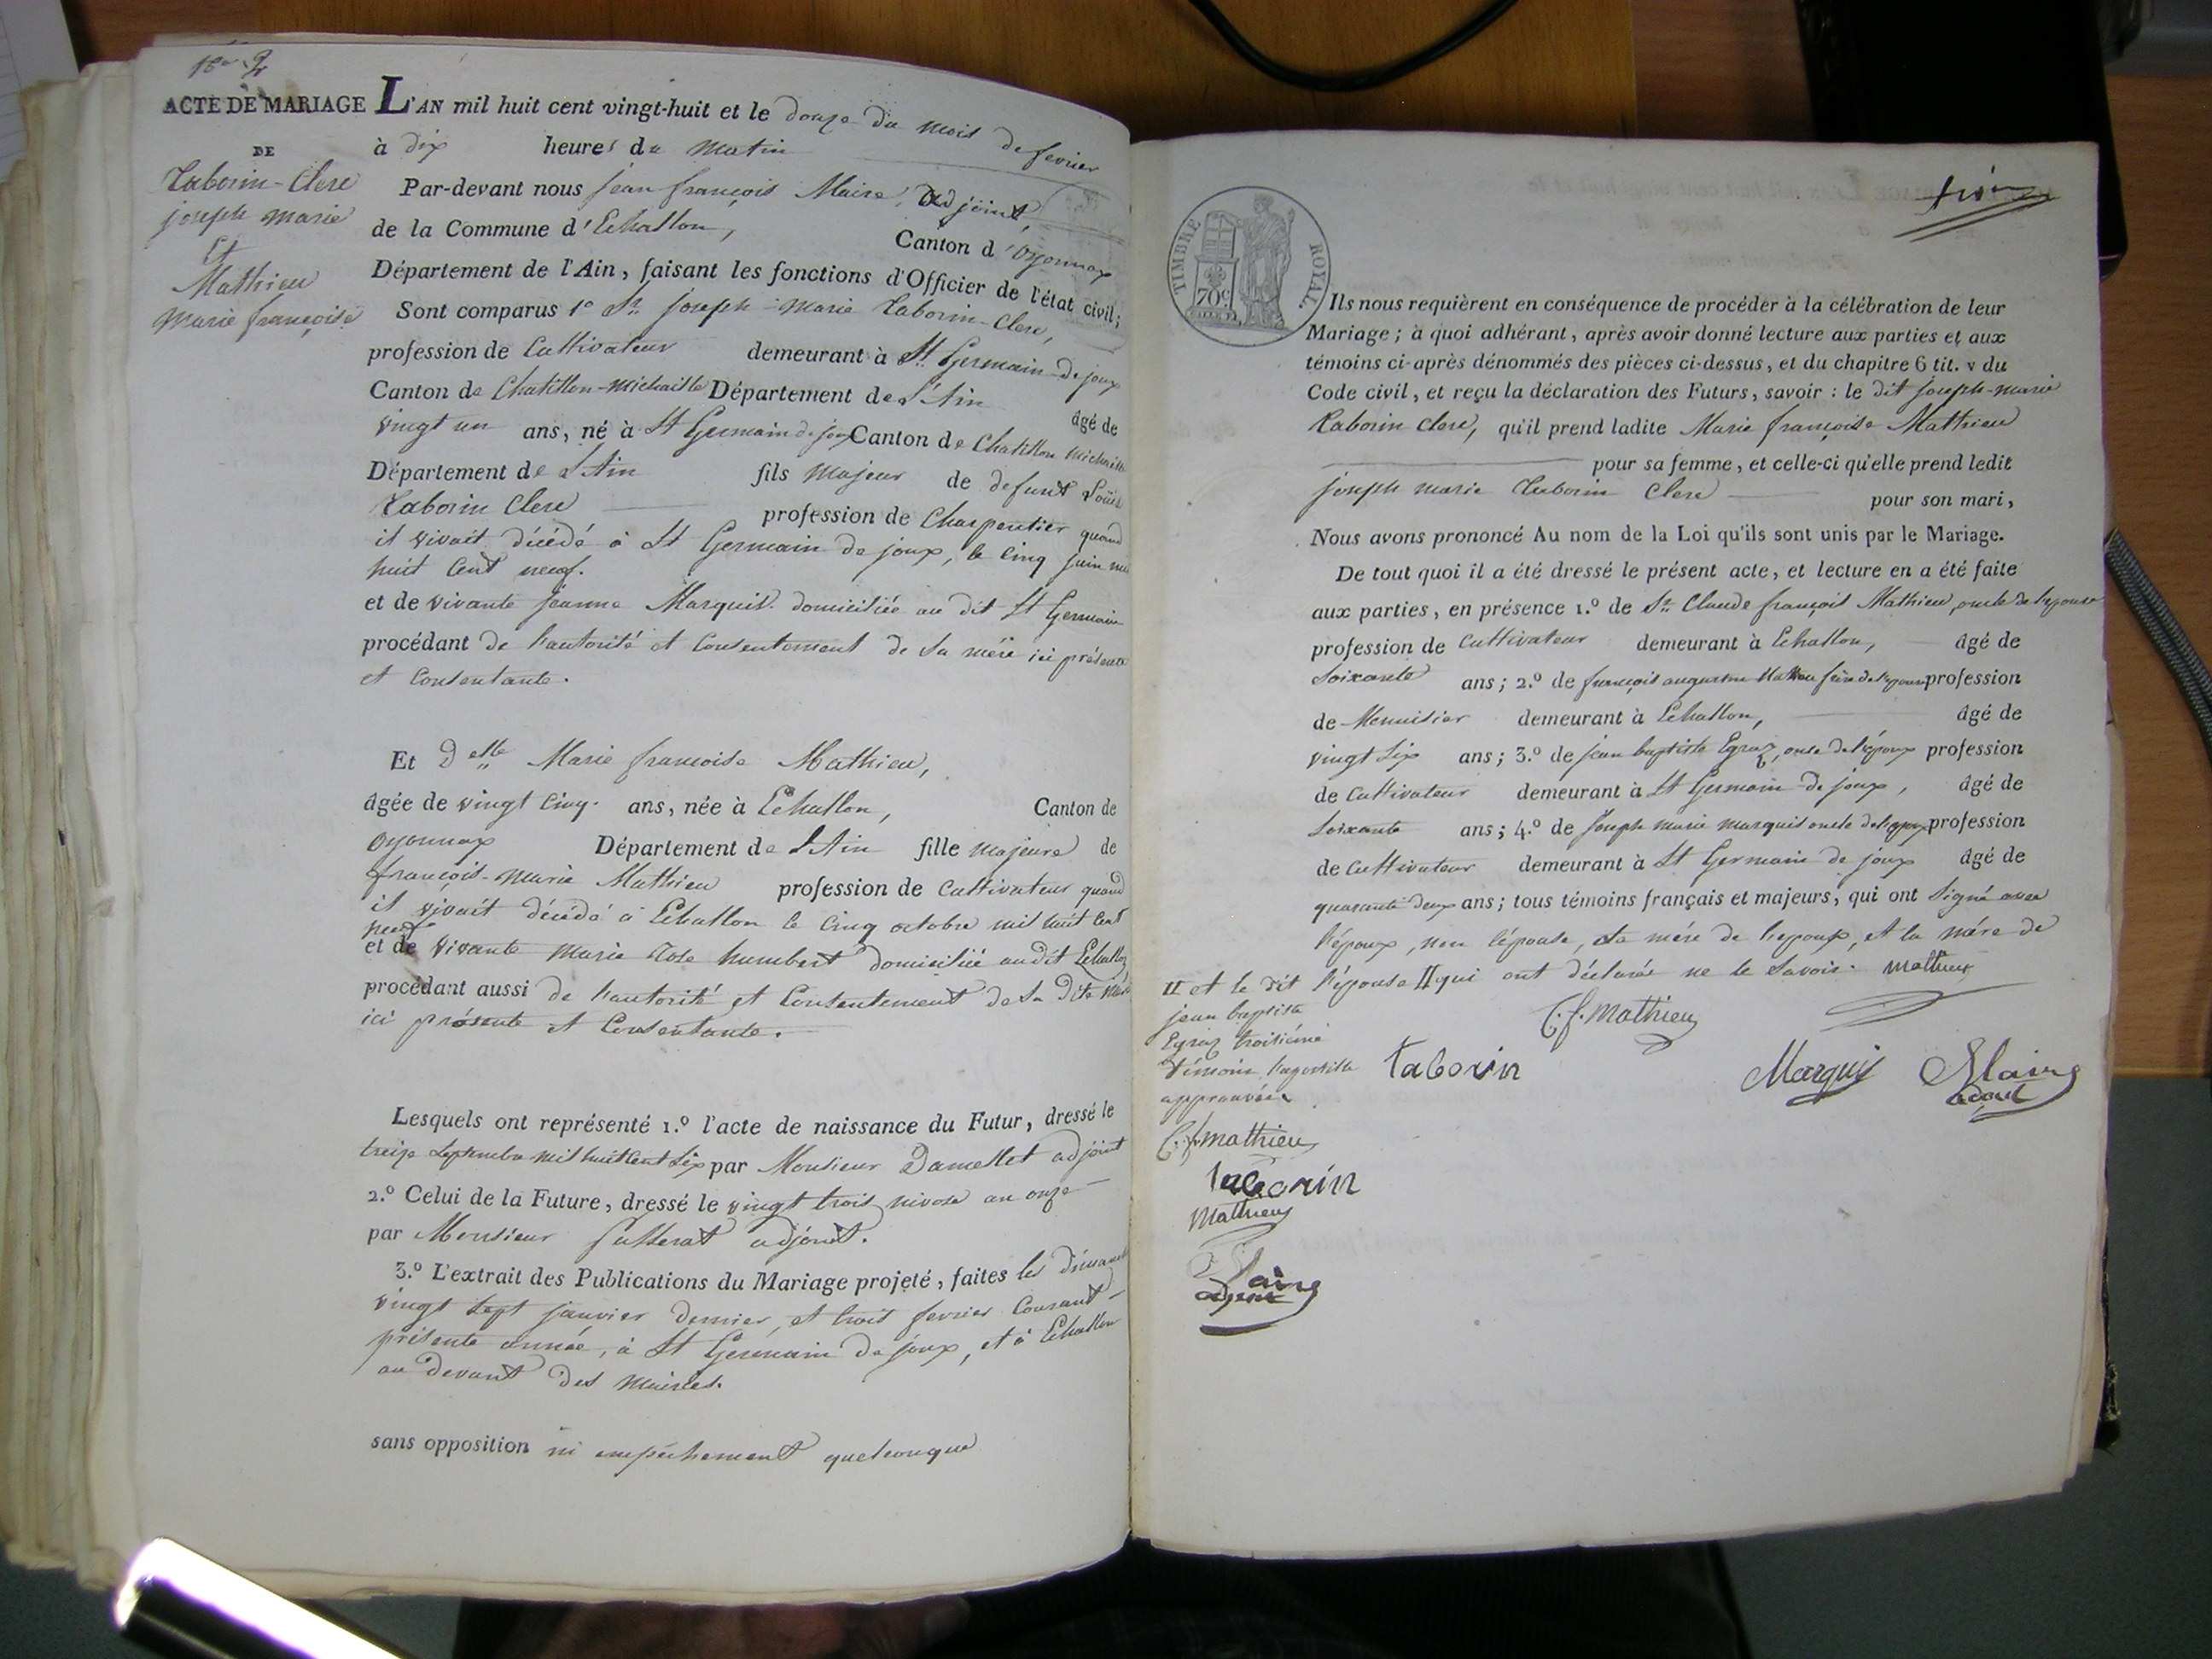 ACTE DE MARIAGE
DE
Taborin-Clerc
joseph marie
Et
Mathieu
Marie françoise
L'AN mil huit cent vingt-huit et le douze du mois de fevrier
à dix heures du matin
Par-devant nous jean françois Maire, Adjoint,
de la Commune d'Echallon, Canton d'oyonnax
Département de l'Ain, faisant les fonctions d'Officier de l'état civil;
Sont comparus 1º Sr. joseph-marie Taborin-Clerc,
profession de Cultivateur demeurant à St Germain-de joux
Canton de Chatillon-Michaille Département de l'Ain âgé de
vingt un ans, né à St Germain de joux Canton de Chatillon Michaille
Département de l'Ain fils majeur de defunt Loüis
Taborin Clerc profession de Charpentier quand
il vivait décédé à St Germain de joux, le cinq juin mil
huit cent neuf.
et de vivante jeanne Marquis domiciliée au dit St Germain
procédant de l'autorité et consentement de sa mère ici présente
et consentante.
Et Delle Marie françoise Mathieu,
âgée de vingt cinq ans, née à Echallon, Canton de
oyonnax Département de l'Ain fille majeure de
françois-marie Mathieu profession de Cultivateur quand
il vivait décédé à Echallon le cinq octobre mil huit cent
neuf
et de vivante marie Rose humbert domiciliée audit Echallon
procédant aussi de l'autorité et consentement de sa dite mère
ici présente et consentante.
Lesquels ont représenté 1.º l'acte de naissance du Futur, dressé le
treize septembre mil huit cent six par Monsieur Damellet adjoint
2.º Celui de la Future, dressé le vingt trois nivose an onze
par Monsieur adjoint.
3.º L'extrait des Publications du Mariage projeté, faites les dimanches
vingt sept janvier dernier, et trois fevrier courant
présente année, à St Germain de joux, et à Echallon
au devant des mairies.
sans opposition ni empêchement quelconque
TIMBRE ROYAL
70c
Ils nous requièrent en conséquence de procéder à la célébration de leur
Mariage; à quoi adhérant, après avoir donné lecture aux parties et aux
témoins ci-après dénommés des pièces ci-dessus, et du chapitre 6 tit. v du
Code civil, et reçu la déclaration des Futurs, savoir : le dit joseph-marie
Taborin Clerc, qu'il prend ladite Marie françoise Mathieu
pour sa femme, et celle-ci qu'elle prend ledit
joseph marie Taborin Clerc pour son mari,
Nous avons prononcé Au nom de la Loi qu'ils sont unis par le Mariage.
De tout quoi il a été dressé le présent acte, et lecture en a été faite
aux parties, en présence 1.º de Sr. Claude françois Mathieu, oncle de l'epouse
profession de cultivateur demeurant à Echallon, âgé de
soixante ans; 2.º de françois augustin Mathieu frère de l'epouse profession
de Menuisier demeurant à Echallon, âgé de
vingt six ans; 3.º de jean baptiste Egraz, oncle de l'époux profession
de Cultivateur demeurant à St Germain de joux, âgé de
soixante ans; 4.º de joseph marie marquis oncle de l'epoux profession
de cultivateur demeurant à St Germain de joux âgé de
quarante deux ans; tous témoins français et majeurs, qui ont signé avec
l'époux, non l'épouse, la mère de l'epoux, et la mère de
l'épouse II qui ont déclarés ne le savoir. Mathieu
II et le dit
jean baptiste
Egraz troisième
témoin l'apostille
approuvée
C.f. Mathieu
Taborin
Marquis
Maire
adjoint
C.f. mathieu
Taborin
Mathieu
Maire
adjoint